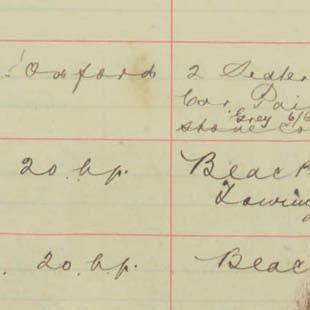 Oxford
2 Seater
Car Pai
Grey 6/6
stone Co
20. h.p. Black
Towing
20 h.p. Black